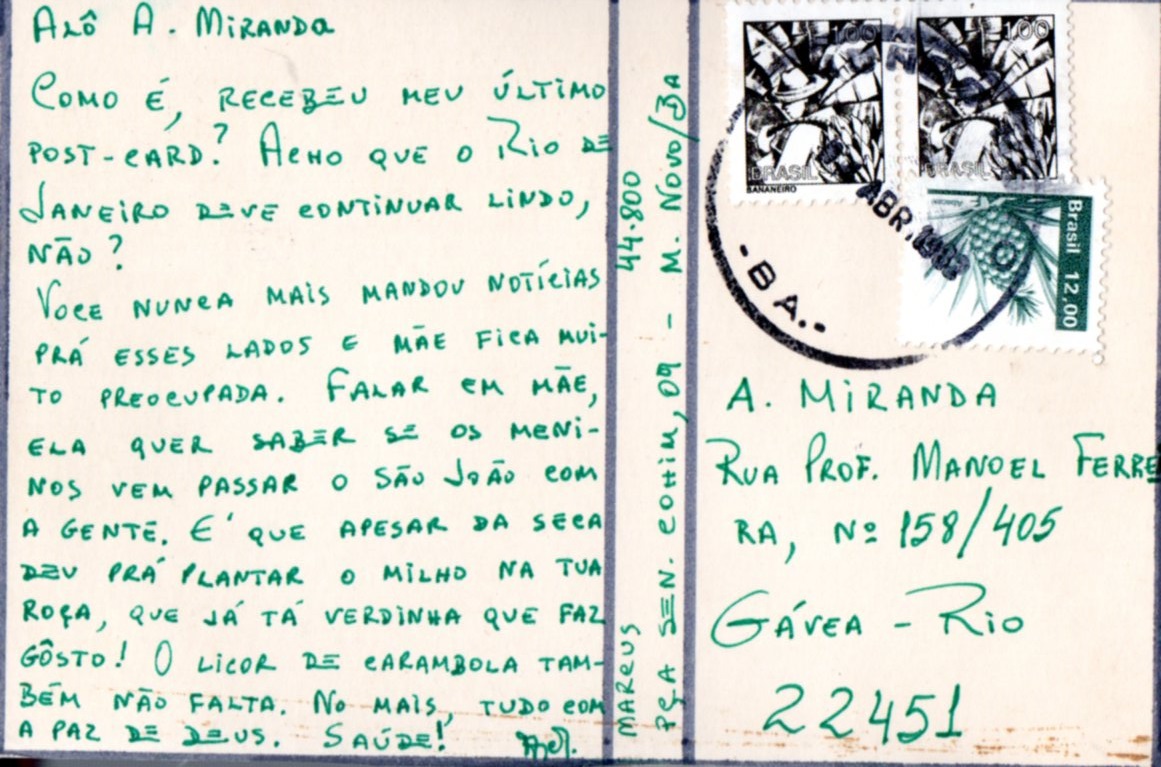 ALÔ A. MIRANDA
COMO É, RECEBEU MEU ÚLTIMO
POST-CARD? ACHO QUE O RIO DE
JANEIRO DEVE CONTINUAR LINDO,
NÃO?
VOCE NUNCA MAIS MANDOU NOTÍCIAS
PRÁ ESSES LADOS E MÃE FICA MUI-
TO PREOCUPADA. FALAR EM MÃE,
ELA QUER SABER SE OS MENI-
NOS VEM PASSAR O SÃO JOÃO COM
A GENTE. E' QUE APESAR DA SECA
DEU PRÁ PLANTAR O MILHO NA TUA
ROÇA, QUE JÁ TÁ VERDINHA QUE FAZ
GÔSTO! O LICOR DE CARAMBOLA TAM-
BÉM NÃO FALTA. NO MAIS, TUDO COM
A PAZ DE DEUS. SAÚDE!
MARCUS 44.800
PÇA SEN. COHIM, 09 - M. NOVO/BA
1,00
BRASIL
BANANEIRO
1,00
BRASIL
Brasil 12,00
Abacaxi
ABR.
- BA. -
A. MIRANDA
RUA PROF. MANOEL FERRE
RA, Nº 158/405
GÁVEA - RIO
22451